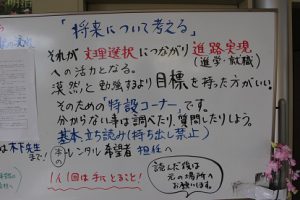 「将来について考える」
それが文理選択につながり進路実現
(進学・就職)
への活力となる。
漠然と勉強するより目標を持った方がいい。
そのための"特設コーナー"です。
分からない事は調べたり、質問したりしよう。
基本、立ち読み(持ち出し禁止)
本のレンタル希望者 担任へ
は木下先生
まで!
1人1回は手にとること!
読んだ後は
元の場所へ
お願いします。